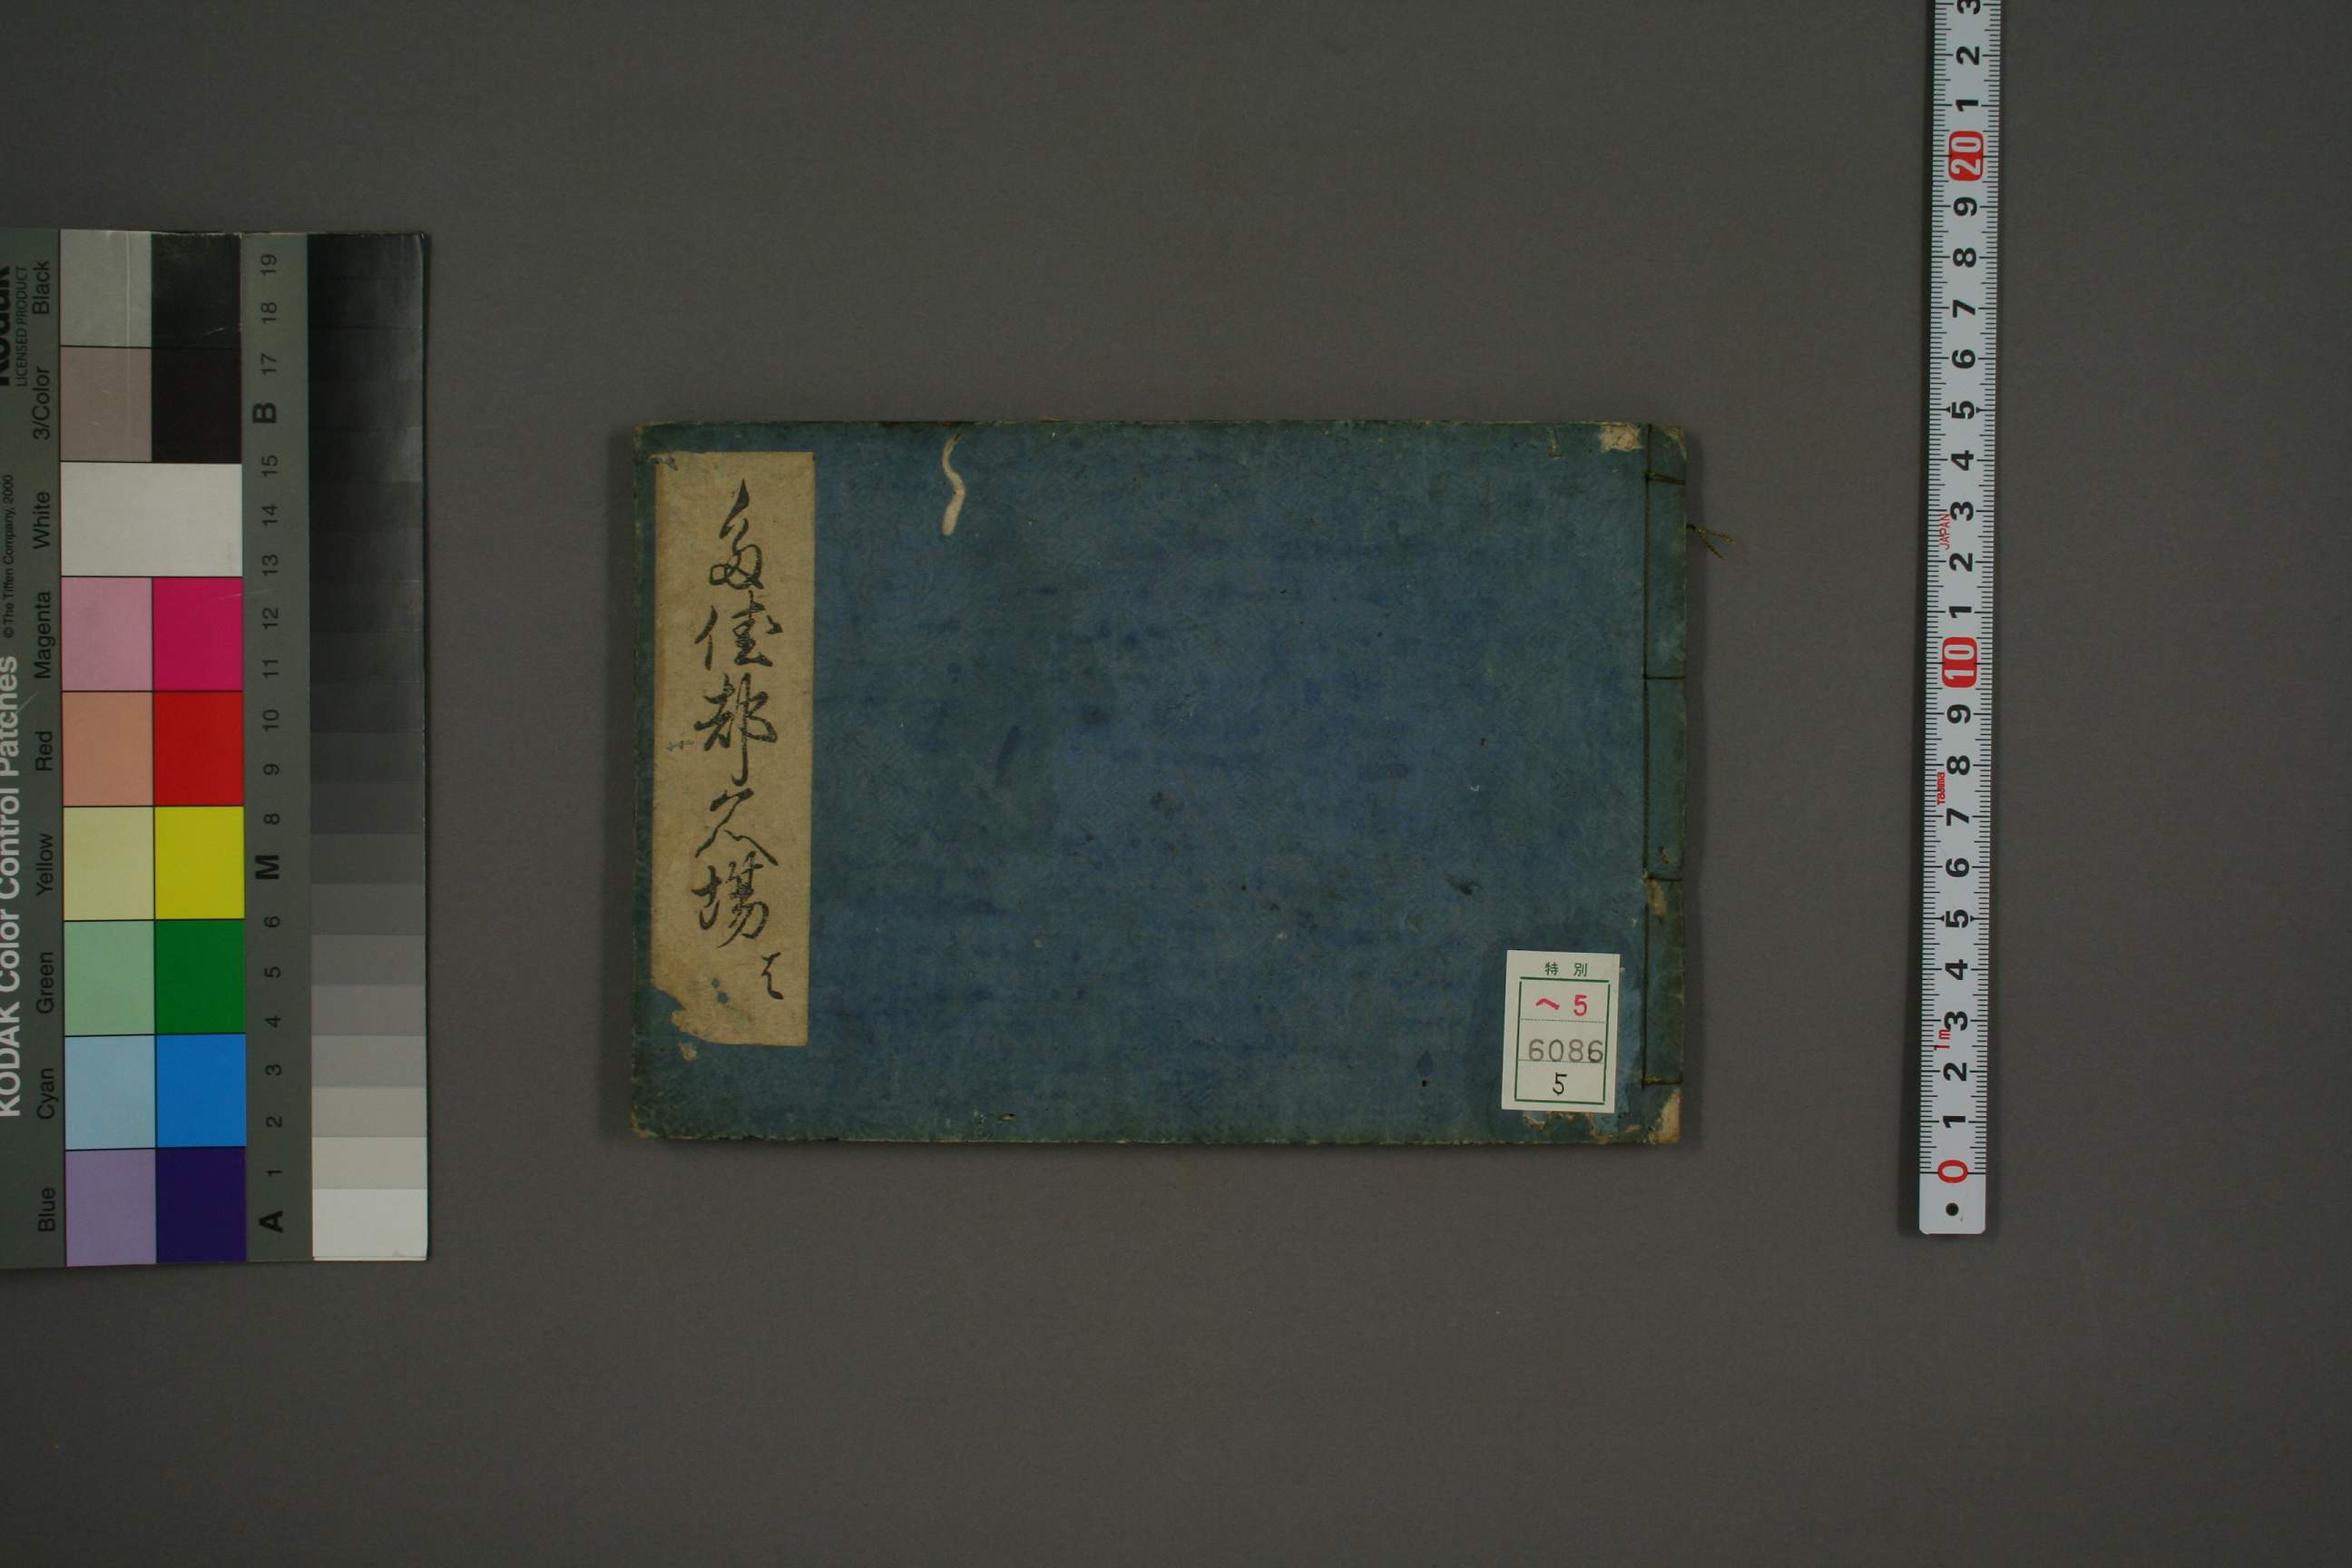 多佳都久場 は
特別
へ5
6086
5
KODAK Color Control Patches
© The Tiffen Company, 2000
Kodak
LICENSED PRODUCT
Blue Cyan Green Yellow Red Magenta White 3/Color Black
A 1 2 3 4 5 6 M 8 9 10 11 12 13 14 15 B 17 18 19
0 1 2 3 4 5 6 7 8 9 10 1 2 3 4 5 6 7 8 9 20 1 2 3
1m
Tajima
JAPAN